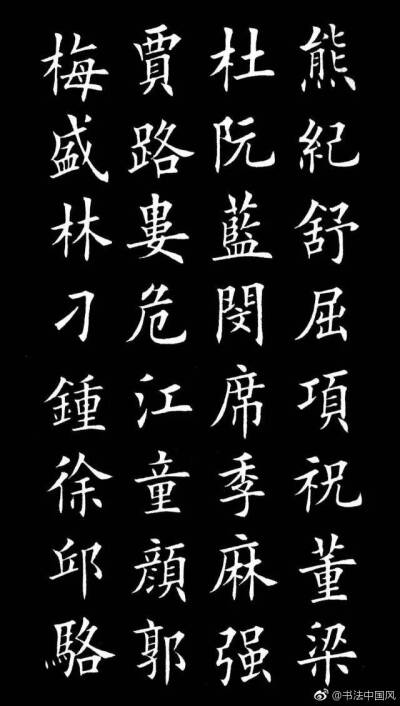 熊紀舒屈項祝董梁
杜阮藍閔席季麻强
賈路婁危江童顏郭
梅盛林刁鍾徐邱駱
@书法中国风